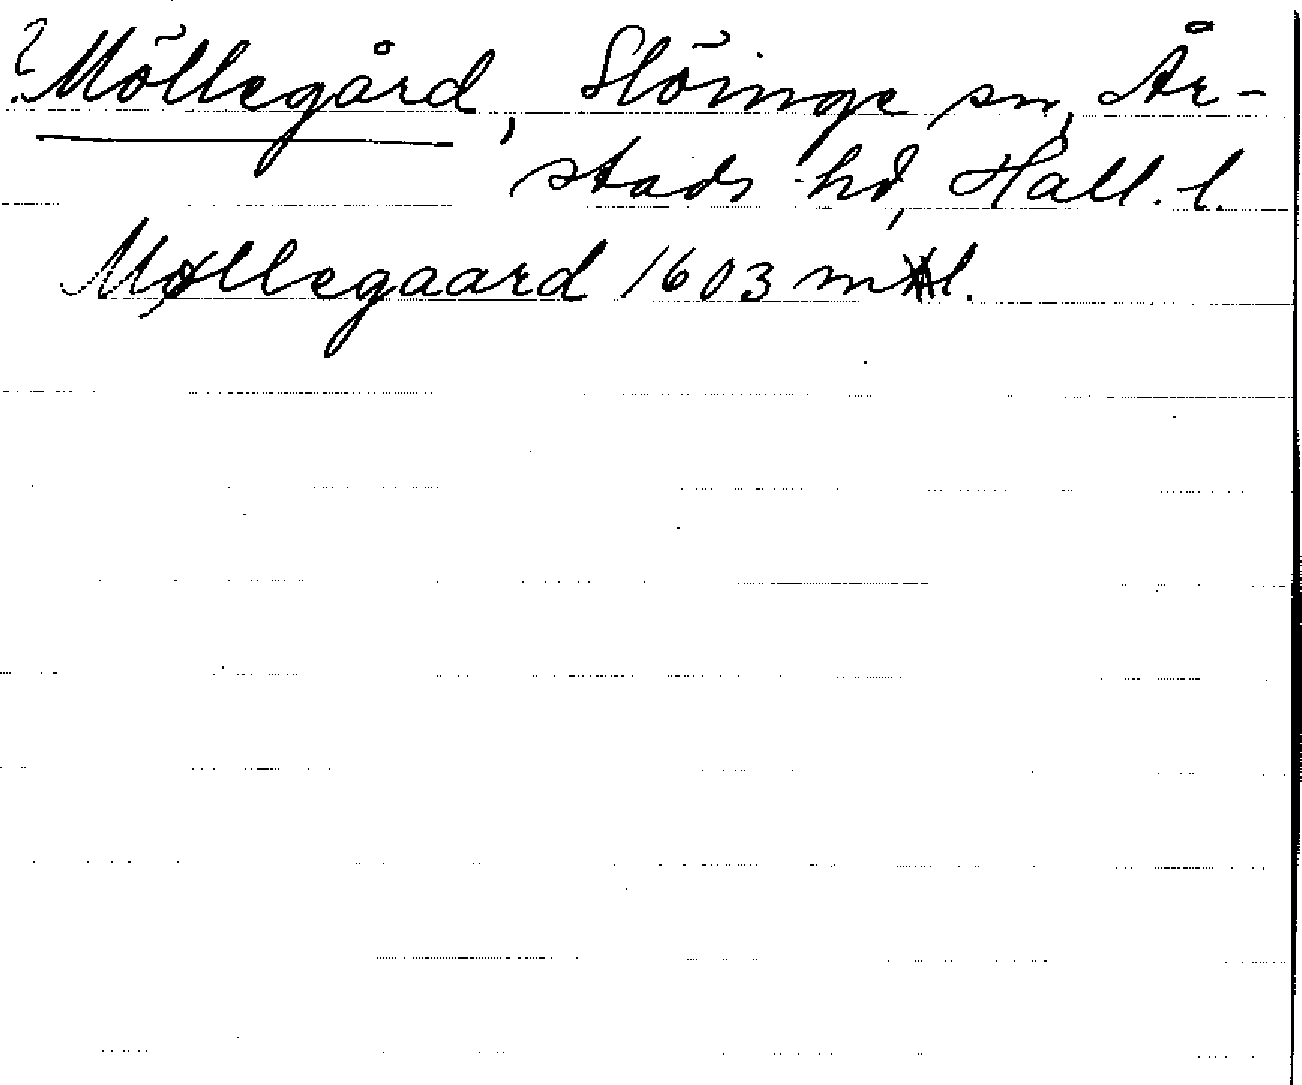 ? Möllegård, Slöinge sn, År-
stads hd, Hall. l.
Møllegaard 1603 ml.